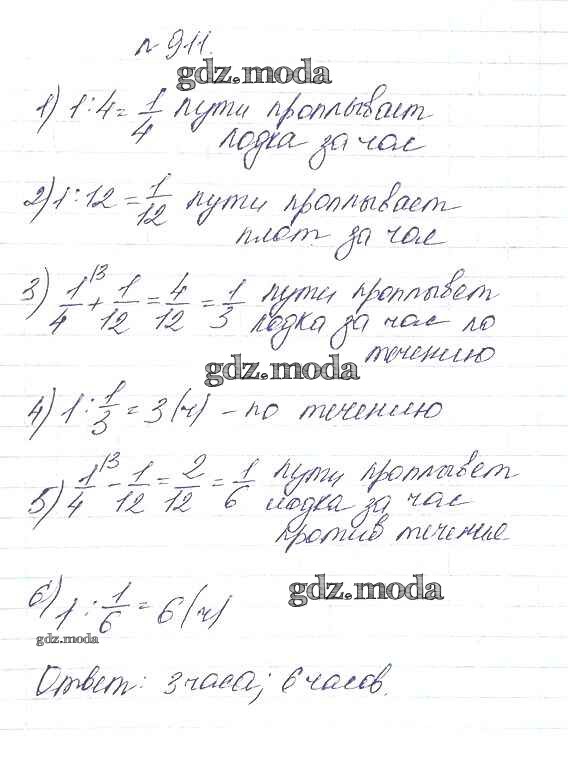 № 911.
gdz.moda
1) 1 : 4 = 1/4 пути проплывает
лодка за час
2) 1 : 12 = 1/12 пути проплывает
плот за час
3) 1/4 \3 + 1/12 = 4/12 = 1/3 пути проплывет
лодка за час по
течению
gdz.moda
4) 1 : 1/3 = 3 (ч) – по течению
5) 1/4 \3 - 1/12 = 2/12 = 1/6 пути проплывет
лодка за час
против течение
6) 1 : 1/6 = 6 (ч)
gdz.moda
gdz.moda
Ответ: 3 часа; 6 часов.